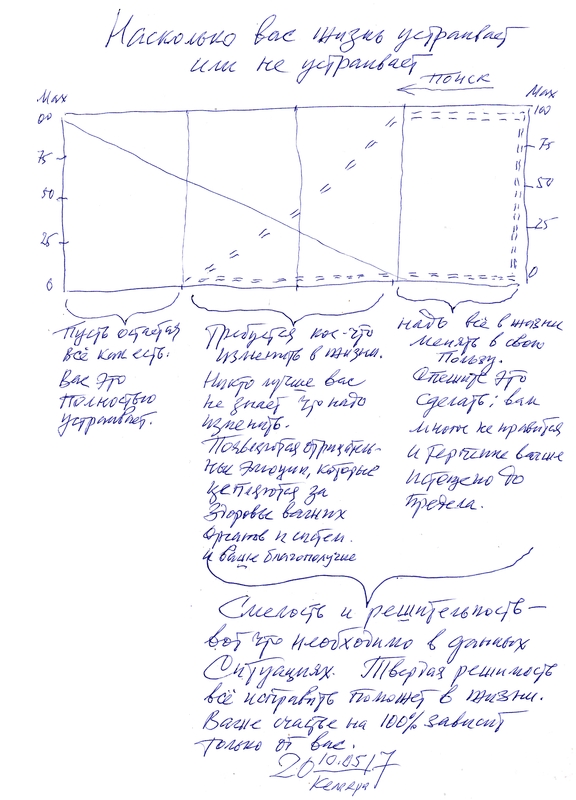 Насколько вас жизнь устраивает
или не устраивает
ПОИСК
Max
00
75
50
25
0
Max
100
75
50
25
0
Пусть остаётся
всё как есть.
Вас это
полностью
устраивает.
Требуется кое-что
изменить в жизни.
Никто лучше вас
не знает что надо
изменить.
Появляются отрицатель-
ные эмоции, которые
цепляются за
здоровье ваших
органов и систем.
и ваше благополучие
надо всё в жизни
менять в свою
пользу.
Спешите это
сделать; вам
многое не нравится
и терпение ваше
истощено до
предела.
Смелость и решительность –
вот что необходимо в данных
ситуациях. Твердая решимость
всё исправить поможет в жизни.
Ваше счастье на 100% зависит
только от вас.
20 10.05 17